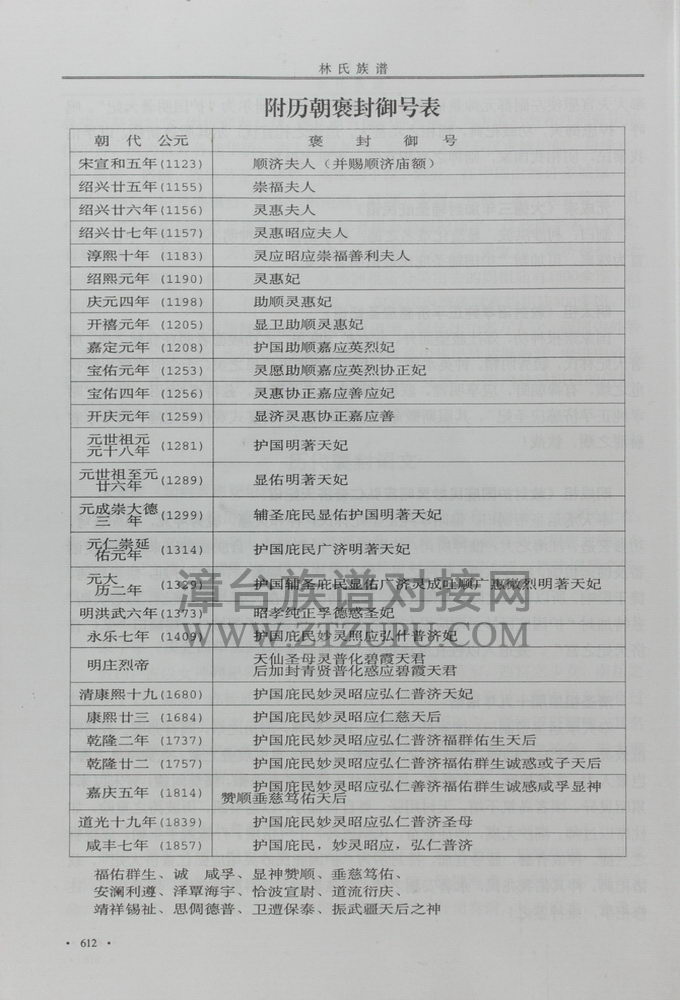 林氏族谱
附历朝褒封御号表
朝 代 公元 褒 封 御 号
宋宣和五年(1123) 顺济夫人(并赐顺济庙额)
绍兴廿五年(1155) 崇福夫人
绍兴廿六年(1156) 灵惠夫人
绍兴廿七年(1157) 灵惠昭应夫人
淳熙十年 (1183) 灵应昭应崇福善利夫人
绍熙元年 (1190) 灵惠妃
庆元四年 (1198) 助顺灵惠妃
开禧元年 (1205) 显卫助顺灵惠妃
嘉定元年 (1208) 护国助顺嘉应英烈妃
宝佑元年 (1253) 灵愿助顺嘉应英烈协正妃
宝佑四年 (1256) 灵惠协正嘉应善应妃
开庆元年 (1259) 显济灵惠协正嘉应善
元世祖元
元十八年 (1281) 护国明著天妃
元世祖至元
廿六年 (1289) 显佑明著天妃
元成崇大德
三 年 (1299) 辅圣庇民显佑护国明著天妃
元仁崇延
佑元年 (1314) 护国庇民广济明著天妃
元大
历二年 (1329) 护国辅圣庇民显佑广济灵成旺顺广惠微烈明著天妃
明洪武六年(1373) 昭孝纯正孚德感圣妃
永乐七年 (1409) 护国庇民妙灵照应弘什普济妃
明庄烈帝 天仙圣母灵普化碧霞天君
后加封青贤普化惑应碧霞天君
清康熙十九(1680) 护国庇民妙灵昭应弘仁普济天妃
康熙廿三 (1684) 护国庇民妙灵昭应仁慈天后
乾隆二年 (1737) 护国庇民妙灵昭应弘仁普济福群佑生天后
乾隆廿二 (1757) 护国庇民妙灵昭应弘仁普济福佑群生诚惑或子天后
嘉庆五年 (1814) 护国庇民妙灵昭应弘仁善济福佑群生诚感咸孚显神
赞顺垂慈笃佑天后
道光十九年(1839) 护国庇民妙灵昭应弘仁普济圣母
咸丰七年 (1857) 护国庇民,妙灵昭应,弘仁普济
福佑群生、诚 咸孚、显神赞顺、垂慈笃佑、
安澜利遵、泽覃海宇、恰波宣尉、道流衍庆、
靖祥锡祉、思倜德普、卫遭保泰、振武疆天后之神
• 612 •
漳台族谱对接网
WWW.ZTZUPU.COM